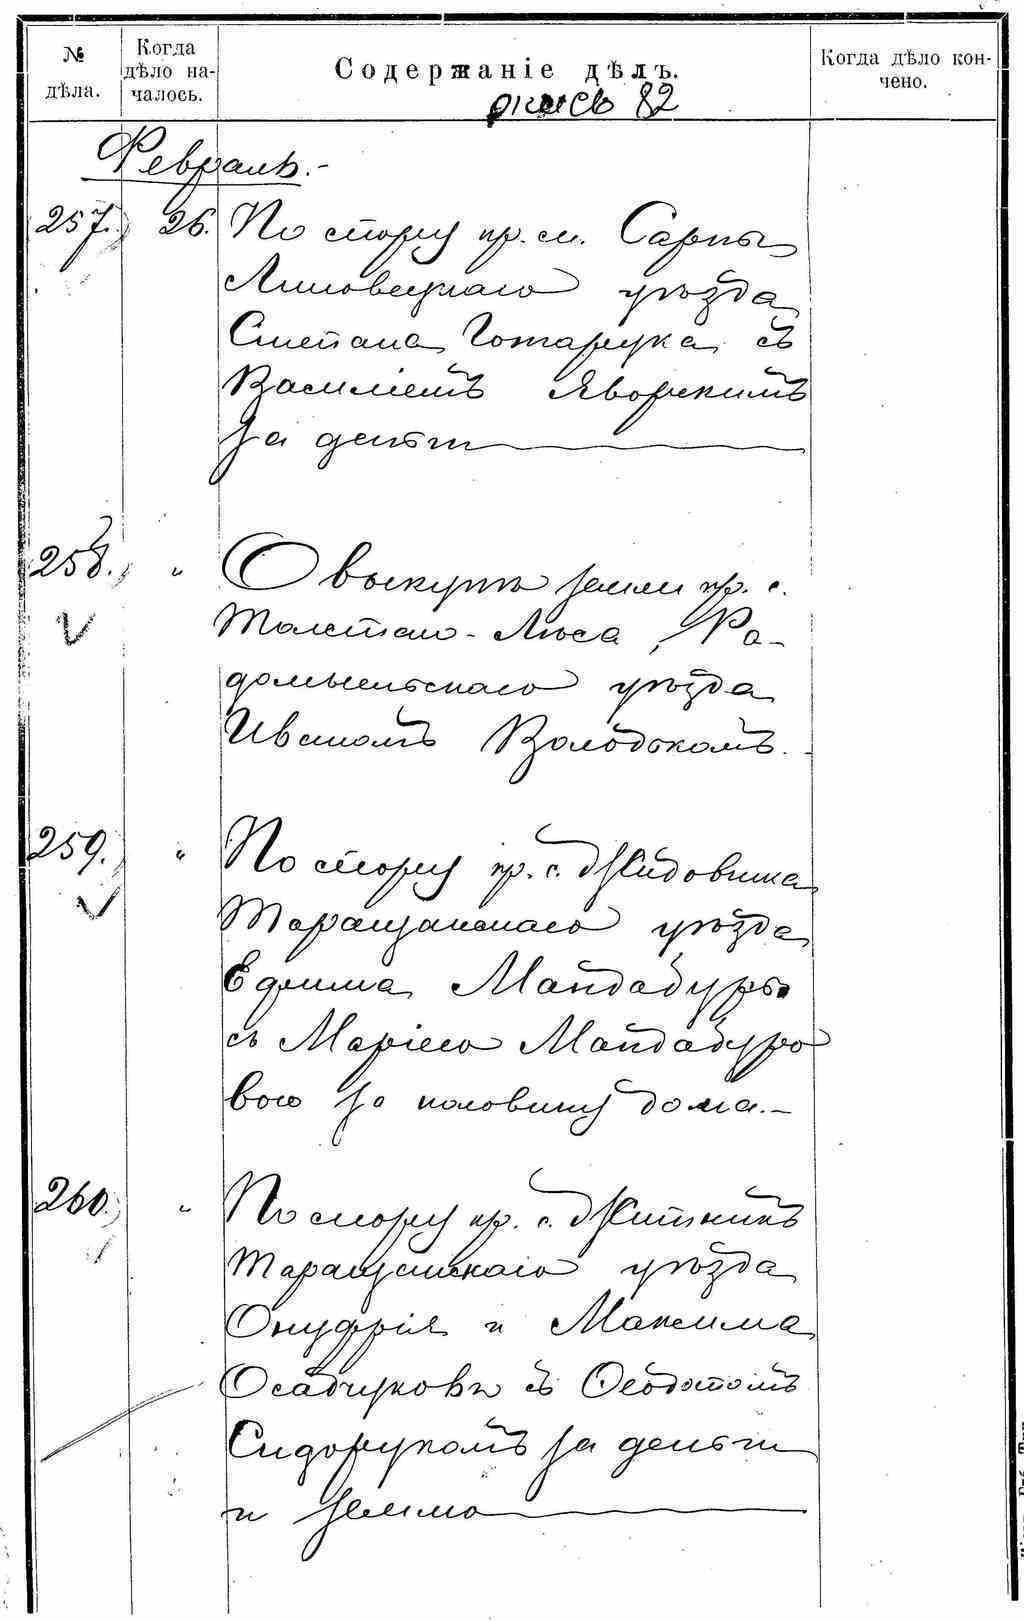 № дѣла.
Когда дѣло началось.
Содержаніе дѣлъ.
Когда дѣло кончено.
опись 82
Февраль.-
257. 26. По спору кр. м. Сарны
Липовецкаго уѣзда
Степана Гонтарука съ
Василіемъ Яворскимъ
за деньги
258. " О выкупѣ земли кр. с.
Толстаго-Лѣса, Ра-
домысльскаго уѣзда
Иваномъ Володькомъ.
259. " По спору кр. с. Жидовчика
Таращанскаго уѣзда
Ефима Майдабуры
съ Маріею Майдабуро
вою за половину дома.-
260. " По спору кр. с. Житникъ
Таращанскаго уѣзда
Онуфрія и Максима
Осадчуковъ съ Ѳеодотомъ
Сидорукомъ за деньги
и землю